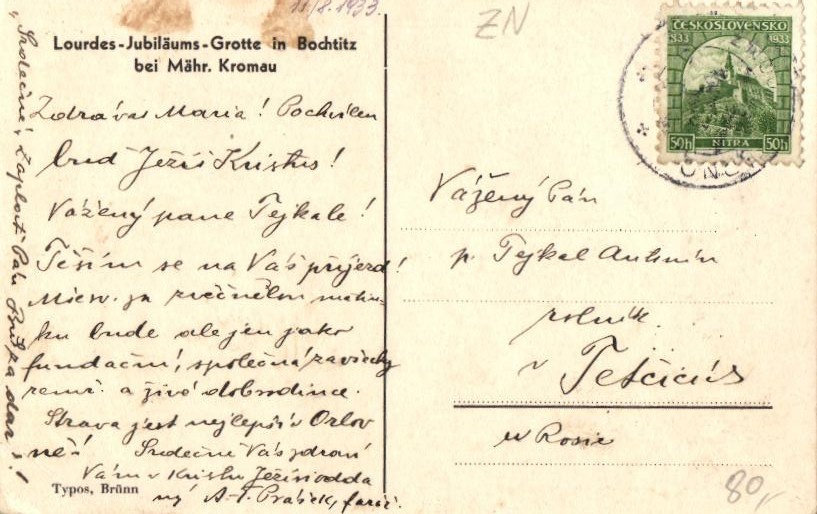 11/8. 1933.
ZN
ČESKOSLOVENSKO
833 1933
50h NITRA 50h
Lourdes-Jubiläums-Grotte in Bochtitz
bei Mähr. Kromau
Zdrávas Maria! Pochválen
buď Ježíš Kristus!
Vážený pane Tejkale!
Těším se na Váš příjezd!
za
ku bude ale jen jako
fundační, společná za všechny
zemř. a živé dobrodince.
Strava jest nejlepší v Orlov
ně! Srdečně Vás zdraví
Vám v Kristu Ježíši odda
ný A. T. farář.
Srdečné „Zaplať Pán Bůh“ za dar!
Typos, Brünn
Vážený Pán
p. Tejkal Antonín
rolník
v Tetčicích
u Rosic
80,-